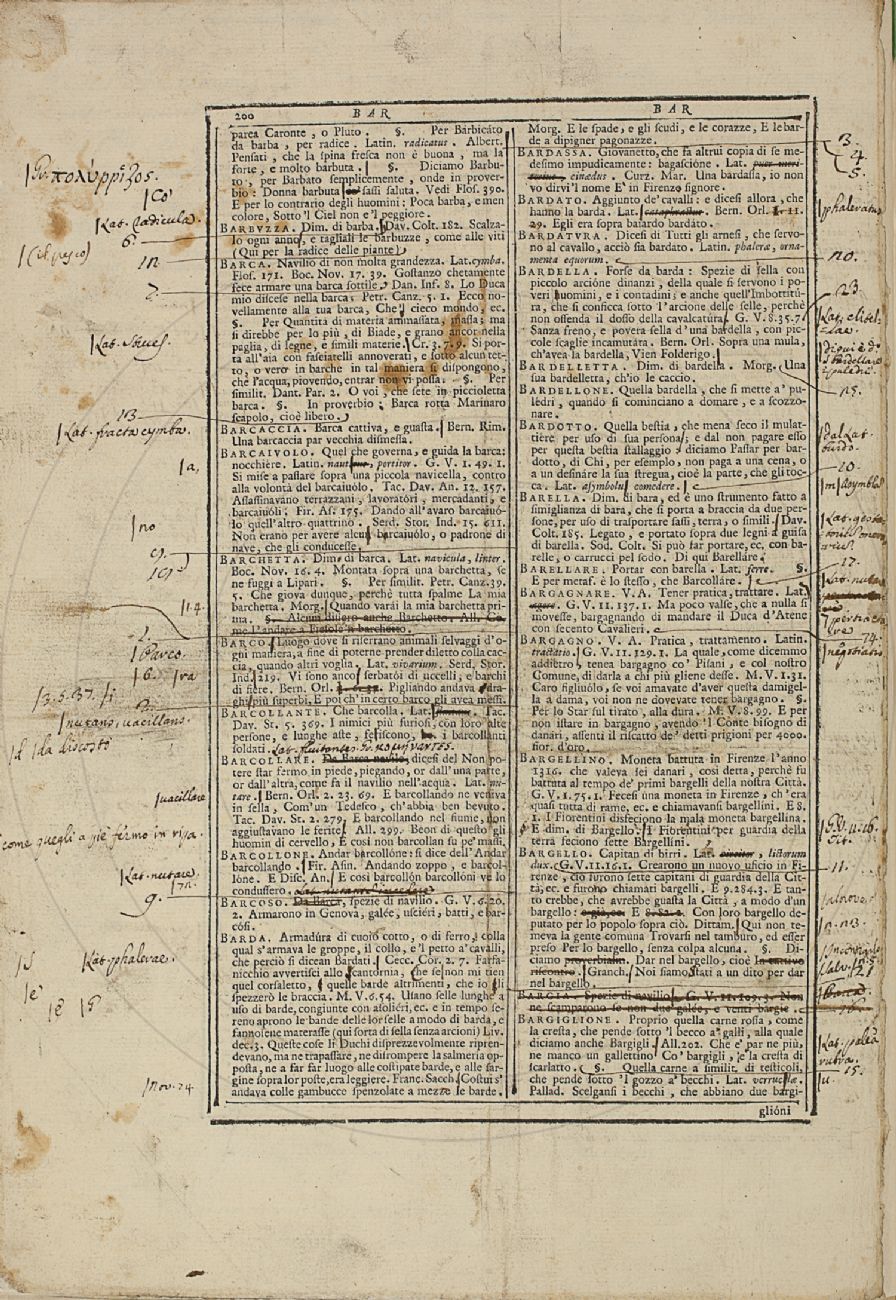 200 BAR BAR
parea Caronte, o Pluto. §. Per Barbicáto
da barba, per radice. Latin. radicatus. Albert.
Pensati, che la spina fresca non è buona, ma la
forte, e molto barbuta. §. Diciamo Barbu-
to, per Barbato semplicemente, onde in prover-
bio: Donna barbuta sassi saluta. Vedi Flos. 390.
E per lo contrario degli huomini: Poca barba, e men
colore, Sotto 'l Ciel non e 'l peggiore.
BARBUZZA. Dim. di barba. Dav. Colt. 182. Scalza-
lo ogni anno, e tagliali le barbuzze, come alle viti
(Qui per la radice delle piante)
BARCA. Navilio di non molta grandezza. Lat. cymba.
Flos. 171. Boc. Nov. 17. 39. Gostanzo chetamente
fece armare una barca sottile. Dan. Inf. 8. Lo Duca
mio discese nella barca. Petr. Canz. 5. 1. Ecco no-
vellamente alla tua barca, Che' cieco mondo, ec.
§. Per Quantita di materia ammassata, massa; ma
si direbbe per lo più, di Biade, e grano ancor nella
paglia, di legne, e simili materie. Cr. 3. 7. 9. Si por-
ta all'aia con fasciatelli annoverati, e sotto alcun tet-
to, o vero in barche in tal maniera si dispongono,
che l'acqua, piovendo, entrar non vi possa. §. Per
similit. Dant. Par. 2. O voi, che sete in piccioletta
barca. §. In proverbio: Barca rotta Marinaro
scapolo, cioè libero.
BARCACCIA. Barca cattiva, e guasta. Bern. Rim.
Una barcaccia par vecchia dismessa.
BARCAIVOLO. Quel che governa, e guida la barca:
nocchière. Latin. portitor. G. V. 1. 49. 1.
Si mise a passare sopra una piccola navicella, contro
alla volontà del barcaiuólo. Tac. Dav. An. 12. 357.
Assassinavano terrazzani, lavoratóri, mercadanti, e
barcaiuóli. Fir. As. 175. Dando all'avaro barcaiuó-
lo quell'altro quattrino. Serd. Stor. Ind. 15. 611.
Non erano per avere alcun barcaiuólo, o padrone di
nave, che gli conducesse.
BARCHETTA. Dim. di barca. Lat. navicula, linter.
Boc. Nov. 16. 4. Montata sopra una barchetta, se
ne fuggi a Lipari. §. Per similit. Petr. Canz. 39.
5. Che giova dunque, perchè tutta spalme La mia
barchetta. Morg. Quando varái la mia barchetta pri-
ma. §. Alcuni dissero anche Barchetto. All. Co-
me l'andare a Fiesole 'n barchetto.
BARCO. Luogo dove si riserrano animali selvaggi d'o-
gni maniera, a fine di poterne prender diletto colla cac-
cia, quando altri voglia. Lat. vivarium. Serd. Stor.
Ind. 219. Vi sono ancor serbatói di uccelli, e barchi
di fiere. Bern. Orl. Pigliando andava dra-
ghi più superbi, E pot ch'in certo barco gli avea messi.
BARCOLLANTE. Che barcolla. Lat. Tac.
Dav. St. 5. 369. I nimici più furiosi, con loro alte
persone, e lunghe aste, feriscono, i barcollanti
soldati.
BARCOLLARE. Da Barca navilio, dicesi del Non po-
tere star fermo in piede, piegando, or dall'una parte,
or dall'altra, come fa il navilio nell'acqua. Lat.
Bern. Orl. 2. 23. 69. E barcollando ne veniva
in sella, Com'un Tedesco, ch'abbia ben bevuto.
Tac. Dav. St. 2. 279. E barcollando nel fiume, non
aggiustavano le ferite. All. 299. Beon di questo gli
huomin di cervello, E così non barcollan su pe' massi.
BARCOLLONE. Andar barcollóne: si dice dell'Andar
barcollando. Fir. Asin. Andando zoppo, e barcol-
lóne. E Disc. An. E così barcollón barcollóni ve lo
condussero.
BARCOSO. Da Barca, spezie di navilio. G. V. 6. 20.
2. Armarono in Genova, galée, uscieri, batti, e bar-
cósi.
BARDA. Armadúra di cuoio cotto, o di ferro, colla
qual s'armava le groppe, il collo, e 'l petto a'cavalli,
che perciò si dicean Bardati. Cecc. Cór. 2. 7. Farfa-
nicchio avvertisci allo scantornia, che se non mi tien
quel corsaletto, quelle barde altrimenti, che io li
spezzerò le braccia. M. V. 6. 54. Usano selle lunghe a
uso di barde, congiunte con asoliéri, ec. e in tempo se-
reno aprono le bande delle lor selle a modo di barda, e
fannolene materasse (qui sorta di sella senza arcioni) Liv.
dec. 3. Queste cose li Duchi disprezzevolmente ripren-
devano, ma ne trapassare, ne disrompere la salmería op-
posta, ne a far far luogo alle costipate barde, e alle sar-
gine sopra lor poste, era leggiere. Franc. Sacch. Costui s'
andava colle gambucce spenzolate a mezze le barde.
Morg. E le spade, e gli scudi, e le corazze, E le bar-
de a dipigner pagonazze.
BARDASSA. Giovanetto, che fa altrui copia di se me-
desimo impudicamente: bagascióne. Lat.
cinædus. Curz. Mar. Una bardassa, io non
vo dirvi 'l nome E' in Firenze signore.
BARDATO. Aggiunto de'cavalli: e dicesi allora, che
hanno la barda. Lat. Bern. Orl. 1. 11.
29. Egli era sopra baiardo bardáto.
BARDATVRA. Dicesi di Tutti gli arnesi, che servo-
no al cavallo, acciò sia bardato. Latin. phaleræ, orna-
menta equorum.
BARDELLA. Forse da barda: Spezie di sella con
piccolo arcióne dinanzi, della quale si servono i po-
veri huomini, e i contadini; e anche quell'Imbottitú-
ra, che si conficca sotto l'arcione delle selle, perchè
non offenda il dosso della cavalcatúra. G. V. 8. 35. 7.
Sanza freno, e povera sella d'una bardella, con pic-
cole scaglie incamutáta. Bern. Orl. Sopra una mula,
ch'avea la bardella, Vien Folderigo.
BARDELLETTA. Dim. di bardella. Morg. Una
sua bardelletta, ch'io le caccio.
BARDELLONE. Quella bardella, che si mette a' pu-
lédri, quando si cominciano a domare, e a scozzo-
nare.
BARDOTTO. Quella bestia, che mena seco il mulat-
tière per uso di sua persona; e dal non pagare esso
per questa bestia stallaggio: diciamo Passar per bar-
dotto, di Chi, per esempio, non paga a una cena, o
a un desináre la sua stregua, cioè la parte, che gli toc-
ca. Lat. asymbolus comedere.
BARELLA. Dim. di bara, ed è uno strumento fatto a
simiglianza di bara, che si porta a braccia da due per-
sone, per uso di trasportare sassi, terra, o simili. Dav.
Colt. 185. Legato, e portato sopra due legni a guisa
di barella. Sod. Colt. Si può far portare, ec. con ba-
relle, o carrucci pel sodo. Di qui Barelláre.
BARELLARE. Portar con barella. Lat. ferre. §.
E per metaf. è lo stesso, che Barcolláre.
BARGAGNARE. V. A. Tener pratica, trattare. Lat.
agere. G. V. 11. 137. 1. Ma poco valse, che a nulla si
movesse, bargagnando di mandare il Duca d'Atene
con secento Cavalieri.
BARGAGNO. V. A. Pratica, trattamento. Latin.
tractatio. G. V. 11. 129. 1. La quale, come dicemmo
addiétro, tenea bargagno co' Pisani, e col nostro
Comune, di darla a chi più gliene desse. M. V. 1. 31.
Caro figliuólo, se voi amavate d'aver questa damigel-
la a dama, voi non ne dovevate tener bargagno. §.
Per lo Star sul tirato, alla dura. M. V. 8. 99. E per
non istare in bargagno, avendo 'l Conte bisogno di
danári, assenti il riscatto de' detti prigioni per 4000.
fior. d'oro.
BARGELLINO. Moneta battuta in Firenze l'anno
1316. che valeva sei danari, così detta, perchè fu
battuta al tempo de' primi bargelli della nostra Città.
G. V. 1. 75. 1. Fecesi una moneta in Firenze, ch'era
quasi tutta di rame, ec. e chiamavansi bargellini. E 8.
1. I Fiorentini disfeciono la mala moneta bargellina.
E dim. di Bargello. I Fiorentini per guardia della
terra feciono sette Bargellini.
BARGELLO. Capitan di birri. Lat. lictorum
dux. G. V. 11. 16. 1. Crearono un nuovo uficio in Fi-
renze, ciò furono sette capitani di guardia della Cit-
tà, ec. e furono chiamati bargelli. E 9. 284. 3. E tan-
to crebbe, che avrebbe guasta la Città, a modo d'un
bargello: E Con loro bargello de-
putato per lo popolo sopra ciò. Dittam. Qui non te-
meva la gente comuna Trovarsi nel tamburo, ed esser
preso Per lo bargello, senza colpa alcuna. §. Di-
ciamo proverbialm. Dar nel bargello, cioè In cattivo
riscontro. Granch. Noi siamo stati a un dito per dar
nel bargello.
BARGIA. Spezie di navilio. G. V. 11. 109. 3. Non
ne scamparono se non due galée, e venti bargie.
BARGIGLIONE. Proprio quella carne rossa, come
la cresta, che pende sotto 'l becco a' galli, alla quale
diciamo anche Bargigli. All. 202. Che e' par ne più,
ne manco un gallettino Co' bargigli, e la cresta di
scarlatto. §. Quella carne a similit. di testicoli,
che pende sotto 'l gozzo a' becchi. Lat. verrucula.
Pallad. Scelgansi i becchi, che abbiano due bargi-
glióni
Gr. πολύρριζος.
Co'
Lat. radicula.
6
in
Lat. Strues.
13
Lat. fracta cymba.
a,
no
14.
Parco.
6. ra
3. 5. 37.
nutans, vacillans.
da discosto
vacillare
come quegli a piè fermo in ripa.
Lat. nutare.
9.
Lat. phalerae.
nov. 24.
3.
4.
5.
phaleratus
10.
23.
15.
dal Lat.
burdo.
10.
17.
24.
11.
15.